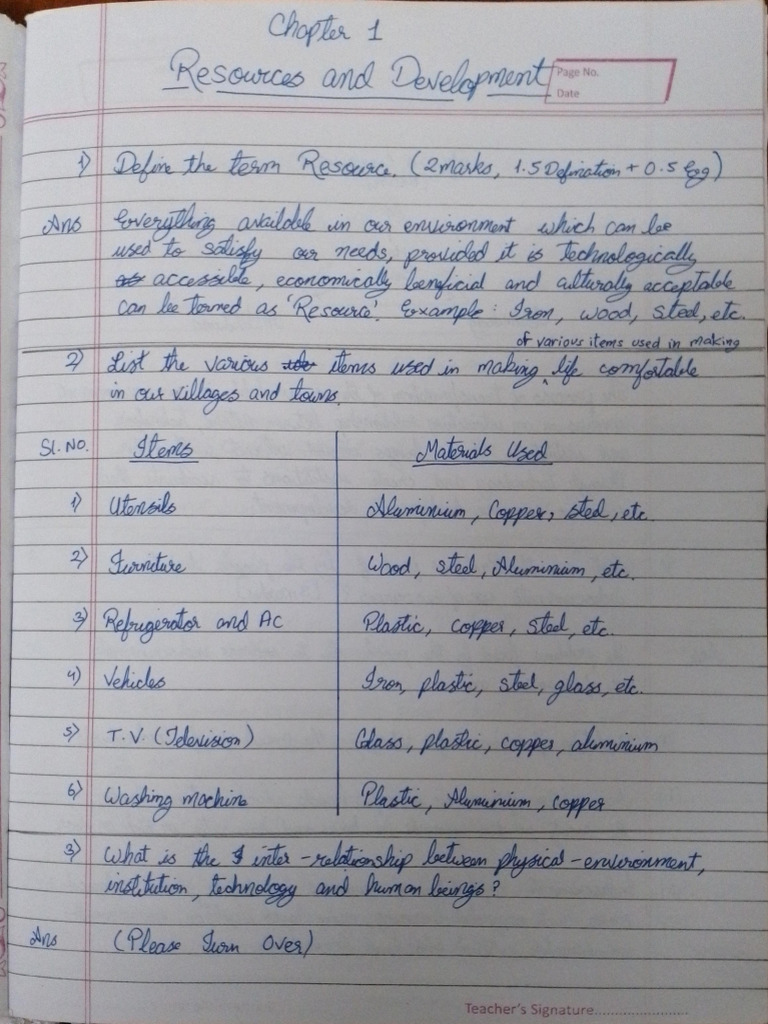 Chapter 1
Resources and Development
Page No.
Date
1) Define the term Resource. (2marks, 1.5 Defination + 0.5 Eg)
Ans Everything available in our environment which can be
used to satisfy our needs, provided it is technologically
accessible, economically beneficial and culturally acceptable
can be termed as 'Resource'. Example: Iron, wood, steel, etc.
of various items used in making
2) List the various items used in making life comfortable
in our villages and towns.
Sl. NO. Items Materials Used
1) Utensils Aluminium, Copper, steel, etc.
2) Furniture Wood, steel, Aluminimum, etc.
3) Refrigerator and AC Plastic, copper, steel, etc.
4) Vehicles Iron, plastic, steel, glass, etc.
5) T.V. (Television) Glass, plastic, copper, aluminium
6) Washing machine Plastic, Aluminium, copper
3) What is the inter-relationship between physical-environment,
institution, technology and human beings?
Ans (Please Turn Over)
Teacher's Signature........................